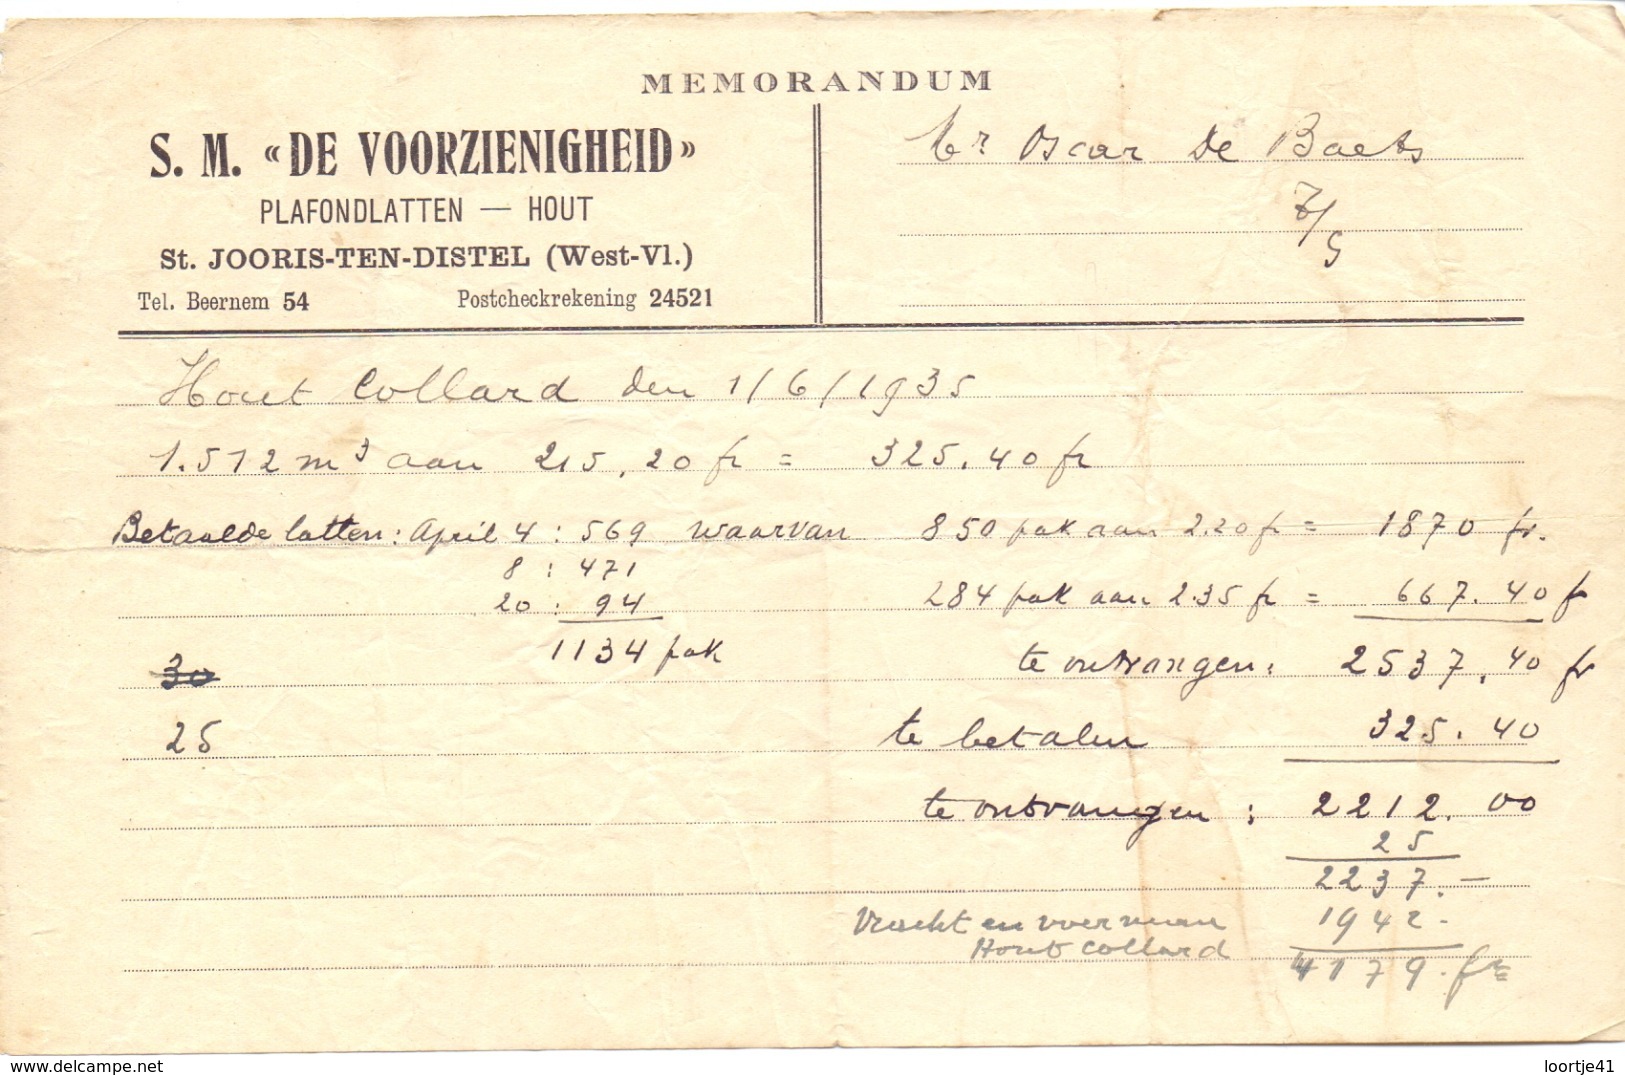 MEMORANDUM
S. M. «DE VOORZIENIGHEID»
PLAFONDLATTEN — HOUT
St. JOORIS-TEN-DISTEL (West-Vl.)
Tel. Beernem 54 Postcheckrekening 24521
Mr Oscar De Baets
7/5
Hout Collard den 1/6/1935
1.512 m³ aan 215,20 fr = 325.40 fr
Betaalde latten: April 4 : 569 waarvan 850 pak aan 2.20 fr = 1870 fr.
8 : 471
20 : 94 284 pak aan 2.35 fr = 667.40 fr
1134 pak te ontvangen: 2537,40 fr
30
25 te betalen 325.40
te ontvangen : 2212.00
25
2237.—
Vracht en voerman 1942.-
Hout Collard
4179.frs
www.delcampe.net
loortje41